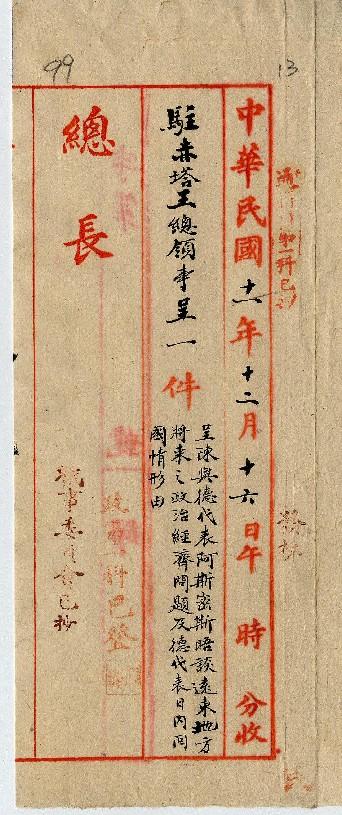 99
13
中華民國十一年十二月十六日午 時 分收
駐赤塔王總領事呈一件
呈陳與德代表阿斯密斯晤談遠東地方
將來之政治經濟問題及德代表日內回
國情形由
總長
政 科已登
事委員會已抄